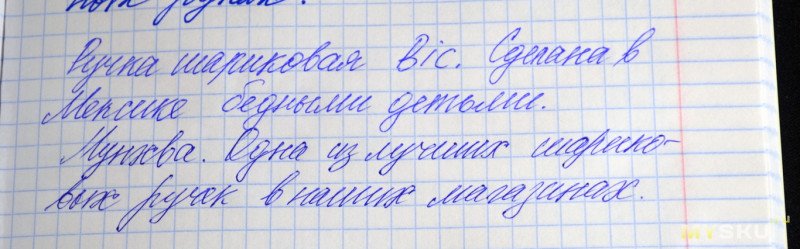 ных ручках.
Ручка шариковая Bic. Сделана в
Мексике бедными детьми.
Мунхва. Одна из лучших шарико-
вых ручек в наших магазинах.
MYSKU.ru